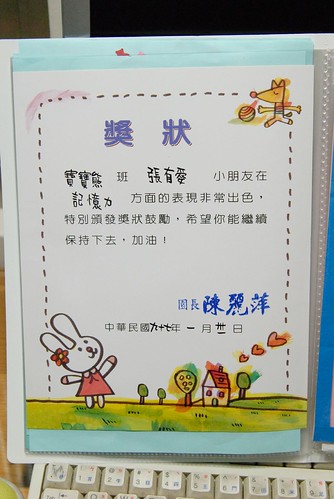 獎狀
寶寶熊 班 張有愛 小朋友在
記憶力 方面的表現非常出色，
特別頒發獎狀鼓勵，希望你能繼續
保持下去，加油！
園長 陳麗萍
中華民國九十七年 一 月 卅 日